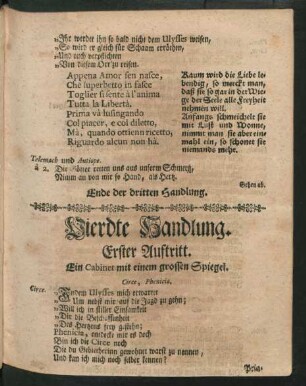 „Ihr werdet ihn so bald nicht dem Ulysses weisen,
„So wird er gleich für Schaam erröthen,
„Und uns verpflichten
„Von diesem Ort zu reisen.
Appena Amor sen nasce,
Ché superbetto in fasce
Toglier si sente à l'anima
Tutta la Libertà,
Prima và lusingando
Col piacer, e col diletto,
Mà, quando ottienn ricetto,
Riguardo alcun non hà.
Kaum wird die Liebe lebendig, so merckt man,
daß sie so gar in der Wiege der Seele alle Freyheit
nehmen will.
Anfangs schmeichelt sie
mit Lust und Wonne,
nimmt man sie aber einmahl ein, so schonet sie
niemands mehr.
Telemach und Antiope.
à 2. Die Götter retten uns aus unserm Schmertz,
Nimm an von mir so Hand, als Hertz.
Gehen ab.
Ende der dritten Handlung.
Vierdte Handlung.
Erster Auftritt.
Ein Cabinet mit einem grossen Spiegel.
Circe, Phenicia.
Circe. „Indem Ulysses mich erwartet
„Um nebst mir auf die Jagd zu gehn;
„Will ich in stiller Einsamkeit
„Die Beschaffenheit
„Des Hertzens frey gestehn;
Phenicia, entdecke mir es doch
Bin ich die Circe noch
Die du Gebietherinn gewohnet warst zu nennen,
Und kan ich mich noch selber kennen?
Phe-